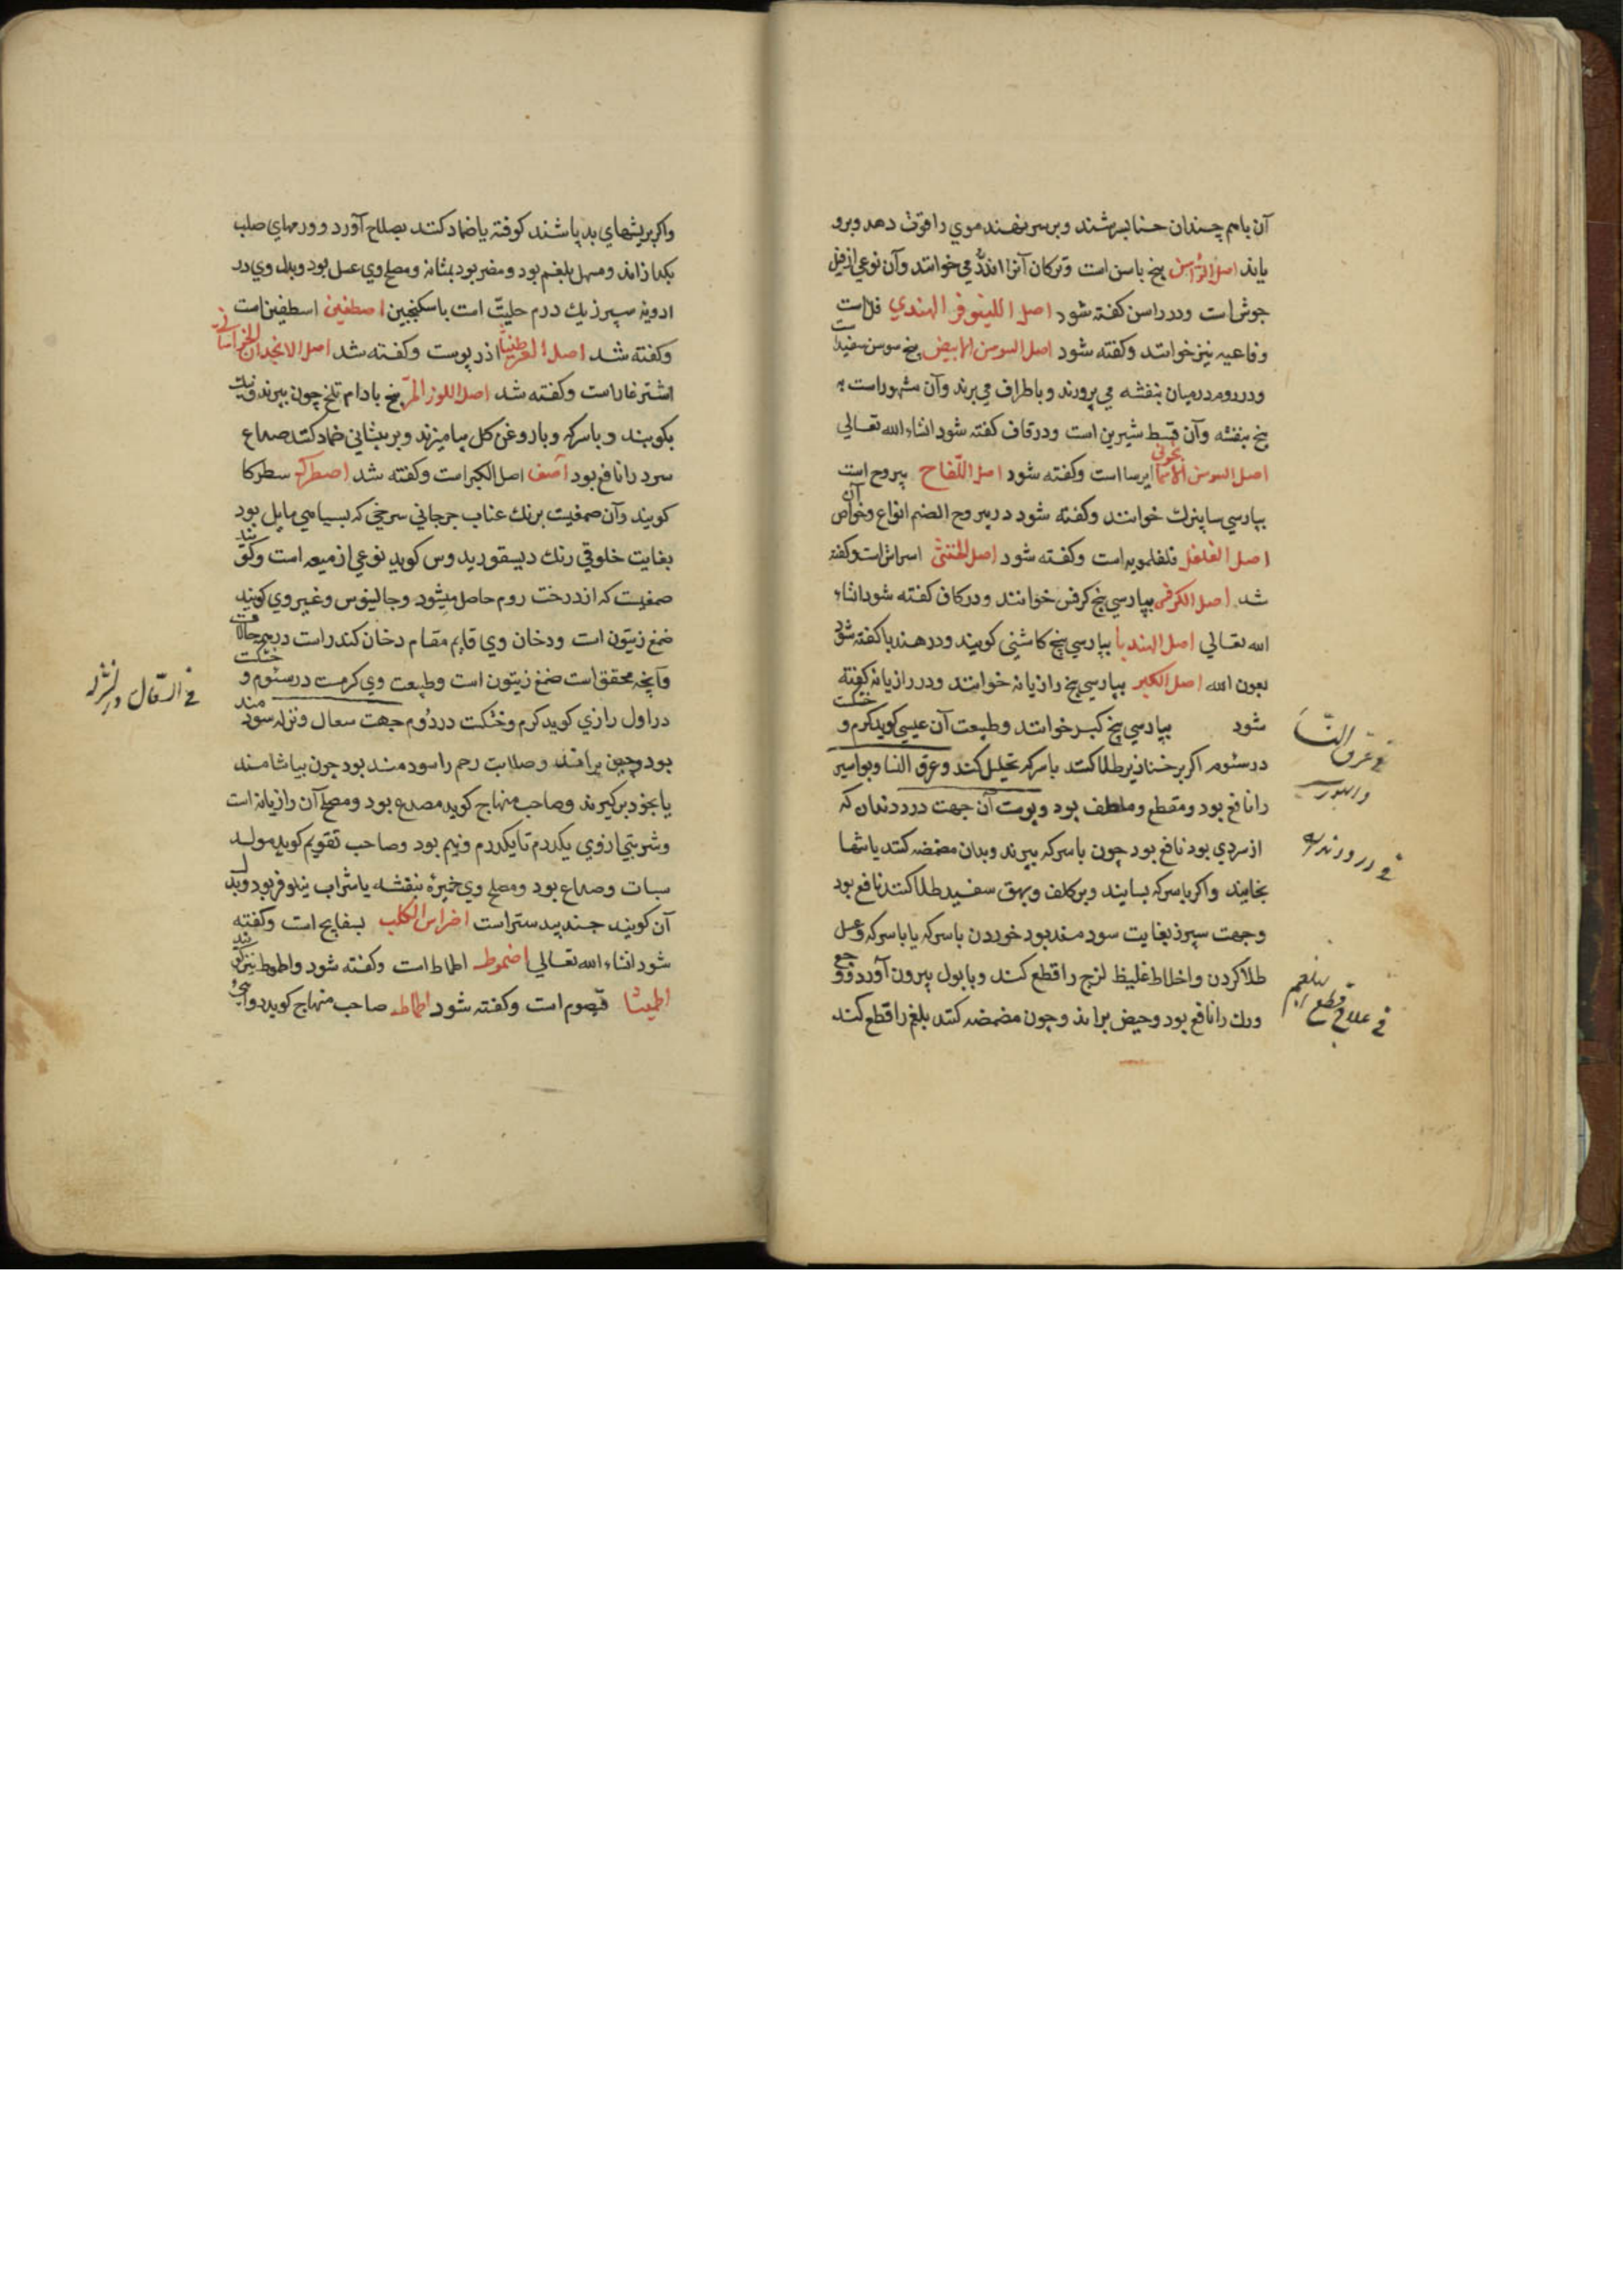 آن باهم چندان حنا بسرشند و بر سر نهند موی را قوت دهد و برو
یاند اصل الراسن بیخ باسن است و ترکان آنرا اندز می خوانند و آن نوعی از فیل
جوش است و در راسن کفته شود اصل اللینوفر الهندی فل است
و فاعیه نیز خوانند و کفته شود اصل السوسن الابیض بیخ سوسن سفید است
و در روم در میان بنفشه می پرورند و باطراف می برند و آن مشهور است به
بیخ بنفشه و آن قسط شیرین است و در قاف کفته شود انشاء الله تعالی
اصل السوسن الاسمانجونی ایرسا است و کفته شود اصل اللفاح یبروح است
بپارسی سابیزک خوانند و کفته شود در یبروح الصنم انواع و خواص آن
اصل الفلفل فلفلمویه است و کفته شود اصل الخنثی اسراش است و کفته
شد اصل الکرفس بپارسی بیخ کرفس خوانند و در کاف کفته شود انشاء
الله تعالی اصل الهندبا بپارسی بیخ کاشنی کویند و در هندبا کفته شود
بعون الله اصل الکبر بپارسی بیخ رازیانه خوانند و در رازیانه کفته
شود بپارسی بیخ کبر خوانند و طبیعت آن عیسی کوید کرم و خشکست
در سئوم اکر بر خنازیر طلا کنند با سرکه تحلیل کند و عرق النسا و بواسیر
را نافع بود و مقطع و ملطف بود و پوست آن جهت درد دندان که
از سردی بود نافع بود چون با سرکه بپزند و بدان مضمضه کنند یا تنها
بخایند و اکر با سرکه بسایند و بر کلف و بهق سفید طلا کنند نافع بود
و جهت سپرز بغایت سودمند بود خوردن با سرکه یا با سرکه و عسل
طلا کردن و اخلاط غلیظ لزج را قطع کند و با بول بیرون آورد و وجع
ورک را نافع بود و حیض براند و چون مضمضه کنند بلغم را قطع کند
فی عرق النسا
و البواسیر
فی درد دندان
فی علاج قطع البلغم
و اکر بریشهای بد پاشند کوفته یا ضماد کنند بصلاح آورد و ورمهای صلب
بکدازاند و مسهل بلغم بود و مضر بود بمثانه و مصلح وی عسل بود و بدل وی در
ادویه سپرز یک درم حلیت است با سکنجبین اصطفین اسطفین است
و کفته شد اصل العرطنیثا اذربوست و کفته شد اصل الانجدان الخراسانی
اشترغار است و کفته شد اصل اللوز المر بیخ بادام تلخ چون بپزند و نیک
بکوبند و با سرکه و با روغن کل بیامیزند و بر پیشانی ضماد کنند صداع
سرد را نافع بود آصف اصل الکبر است و کفته شد اصطرک سطرکا
کویند و آن صمغیست برنک عناب جرجانی سرخی که بسیاهی مایل بود
بغایت خلوقی رنک دیسقوریدوس کوید نوعی از میعه است و کویند
صمغیست که از درخت روم حاصل میشود و جالینوس و غیر وی کویند
صمغ زیتون است و دخان وی قایم مقام دخان کندر است در جمیع حالات
و آنچه محقق است صمغ زیتون است و طبیعت وی کرمست در سئوم و خشکست
در اول رازی کوید کرم و خشکست در دوم جهت سعال و نزله سودمند
بود و حیض براند و صلابت رحم را سودمند بود چون بیاشامند
یا بخود برکیرند و صاحب منهاج کوید مصدع بود و مصلح آن رازیانه است
و شربتی از وی یکدرم تا یکدرم و نیم بود و صاحب تقویم کوید مولد
سبات و صداع بود و مصلح وی خمیره بنفشه یا شراب نیلوفر بود و بدل
آن کویند جندبیدستر است اضراس الکلب بسفایج است و کفته
شود انشاء الله تعالی اضموط اطماط است و کفته شود و اطموط نیز کویند
اطیشا قیصوم است و کفته شود اطماط صاحب منهاج کوید دوایی
فی السعال و النزله